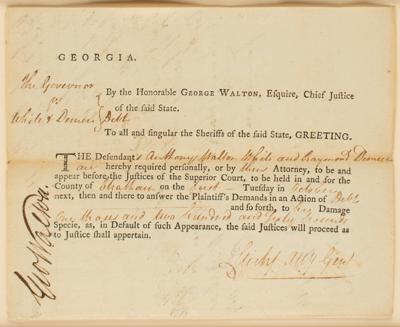 GEORGIA.
The Governor
vs
White & Demere
Debt
By the Honorable GEORGE WALTON, Esquire, Chief Justice
of the said State.
To all and singular the Sheriffs of the said State, GREETING.
THE Defendants Anthony Walton White and Raymond Demere
are hereby required personally, or by their Attorney, to be and
appear before the Justices of the Superior Court, to be held in and for the
County of Chatham on the first Tuesday in October
next, then and there to answer the Plaintiff's Demands in an Action of Debt
and so forth, to his Damage
One thousand two hundred and Pounds
Specie, as, in Default of such Appearance, the said Justices will proceed as
to Justice shall appertain.
Geo Walton
Atty Genl